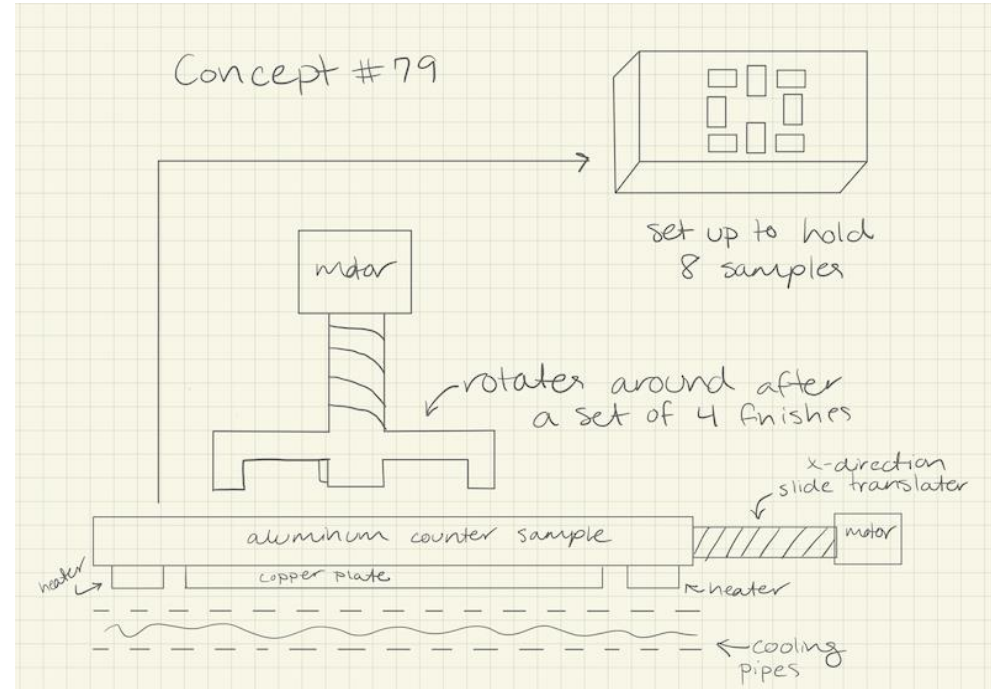 Concept #79
set up to hold
8 samples
motor
rotates around after
a set of 4 finishes
x-direction
slide translater
aluminum counter sample
motor
heater
copper plate
heater
cooling
pipes